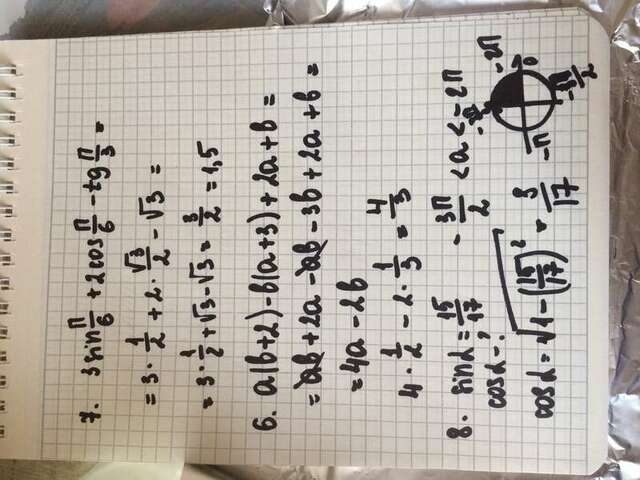 7. 3 sin π/6 + 2 cos π/6 - tg π/3 =
= 3 · 1/2 + 2 · √3/2 - √3 =
= 3 · 1/2 + √3 - √3 = 3/2 = 1,5
6. a(b+2) - b(a+3) + 2a + b =
= ab + 2a - ab - 3b + 2a + b =
= 4a - 2b
4 · 1/2 - 2 · 1/3 = 4/3
8. sin α = 15/17 - 3π/2 < a < - 2π
cos α - ?
cos α = √(1 - (15/17)²) = 8/17
- 2π
0
- π